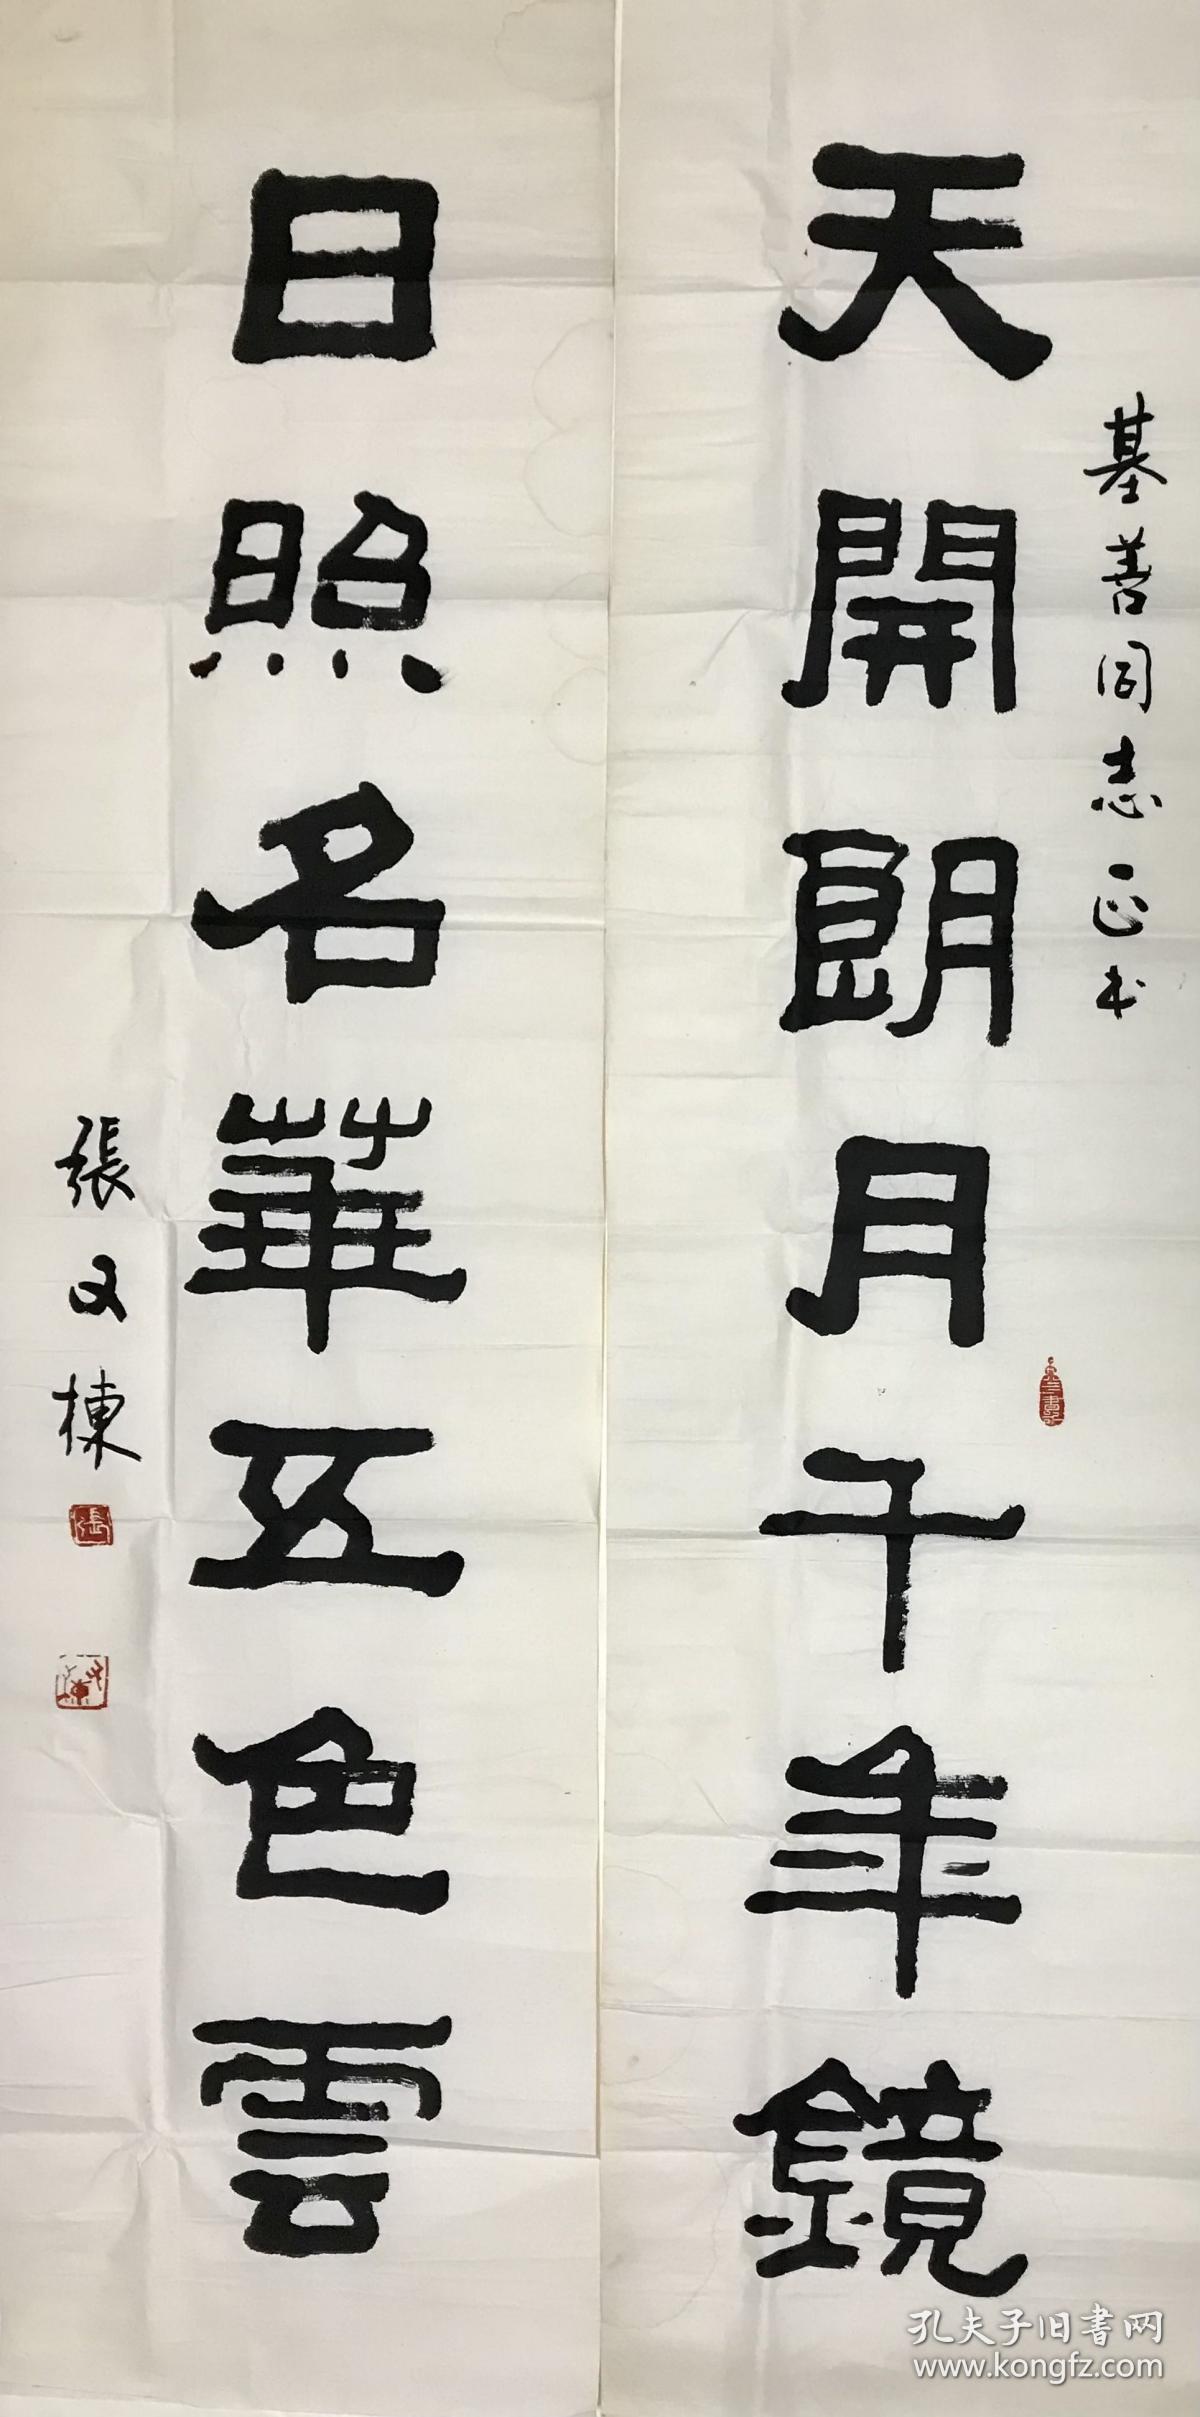 基善同志正书
天開朗月千年鏡
日照名華五色雲
張又棟
張
孔夫子旧書网
www.kongfz.com